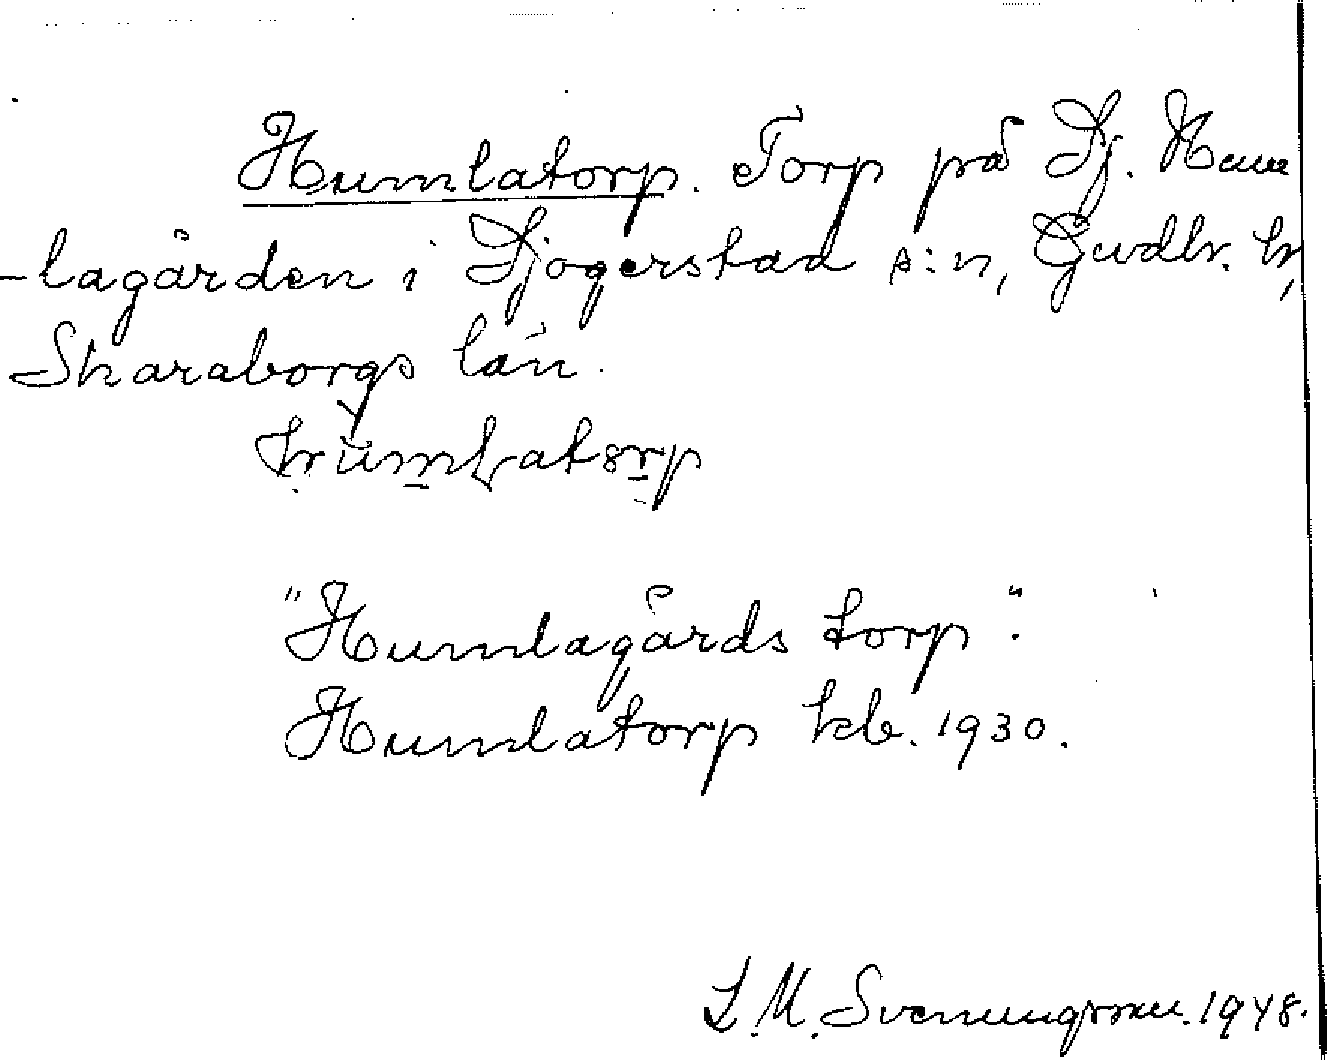 Humlatorp. Torp på Dj. Hum
-lagården i Djogerstad s:n, Gudh. h,
Skaraborgs län.
"Humlagårds torp".
Humlatorp kb. 1930.
L. M. Svenungsson. 1948.